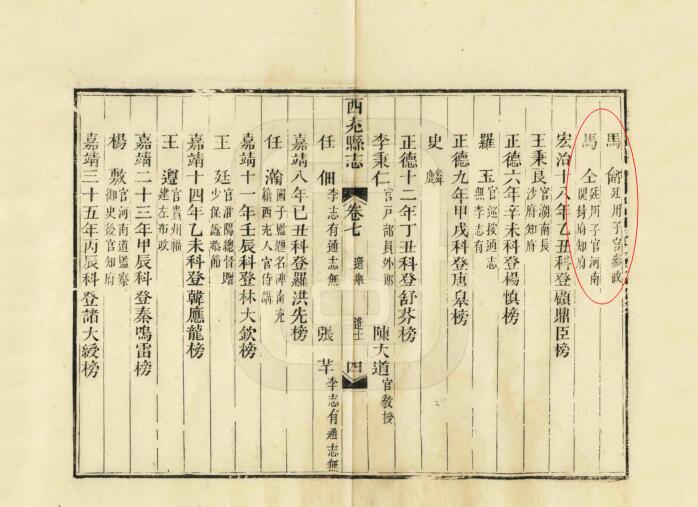 馬侖 廷用子官參政
馬仝 廷用子官河南開封府知府
宏治十八年乙丑科登顧鼎臣榜
王秉良 官湖南長沙府知府
正德六年辛未科登楊慎榜
羅玉 官巡按通志無李志有
正德九年甲戌科登唐臯榜
史麟
正德十二年丁丑科登舒芬榜
李秉仁 官戸部員外郎 陳大道 官教授
西充縣志 卷七 選舉 進士 四
任佃 李志有通志無 張芊 李志有通志無
嘉靖八年己丑科登羅洪先榜
任瀚 國子監題名碑南充籍西充人官侍講
嘉靖十一年壬辰科登林大欽榜
王廷 官淮陽總督贈少保諡恭節
嘉靖十四年乙未科登韓應龍榜
王遵 官貴州福建左布政
嘉靖二十三年甲辰科登秦鳴雷榜
楊敷 官河南道監察御史後官知府
嘉靖三十五年丙辰科登諸大綬榜